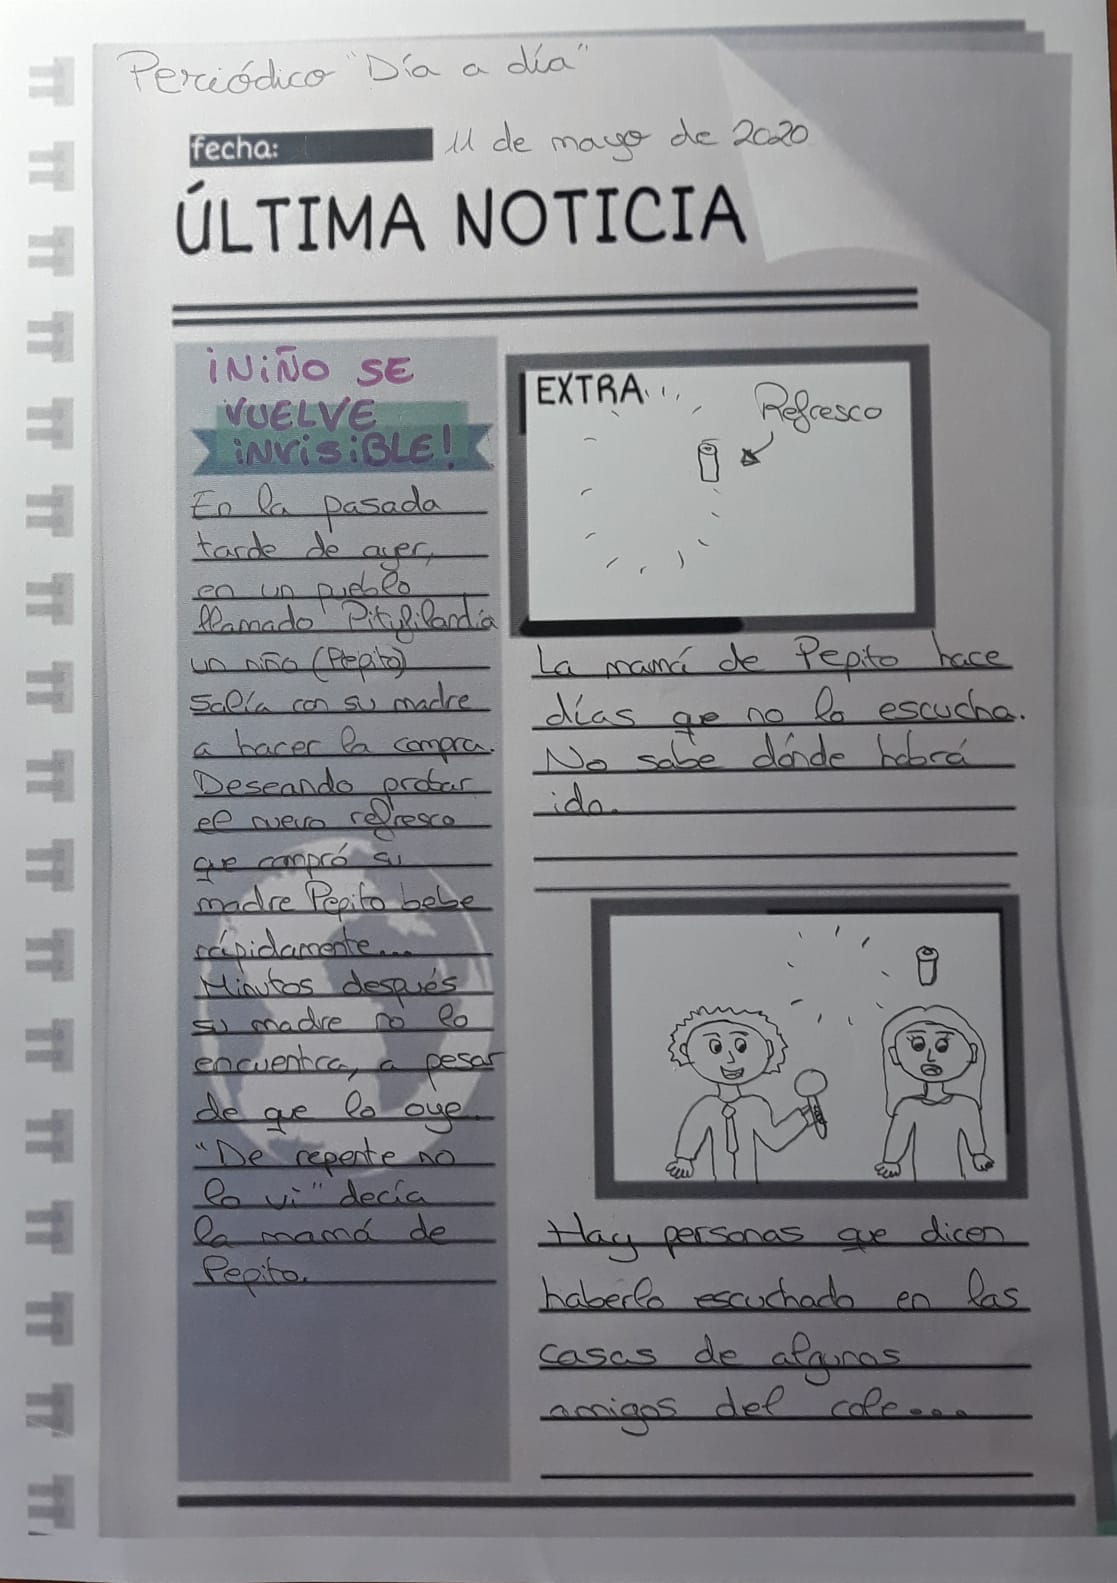 Periódico "Día a día"
fecha: 11 de mayo de 2020
ÚLTIMA NOTICIA
¡NIÑO SE
VUELVE
INVISIBLE!
En la pasada
tarde de ayer,
en un pueblo
llamado Pitufilandia
un niño (Pepito)
salía con su madre
a hacer la compra.
Deseando probar
el nuevo refresco
que compró su
madre Pepito bebe
rápidamente...
Minutos después
su madre no lo
encuentra, a pesar
de que lo oye.
"De repente no
lo vi" decía
la mamá de
Pepito.
EXTRA
Refresco
La mamá de Pepito hace
días qe no lo escucha.
No sabe dónde habrá
ido.
Hay personas que dicen
haberlo escuchado en las
casas de algunos
amigos del cole...